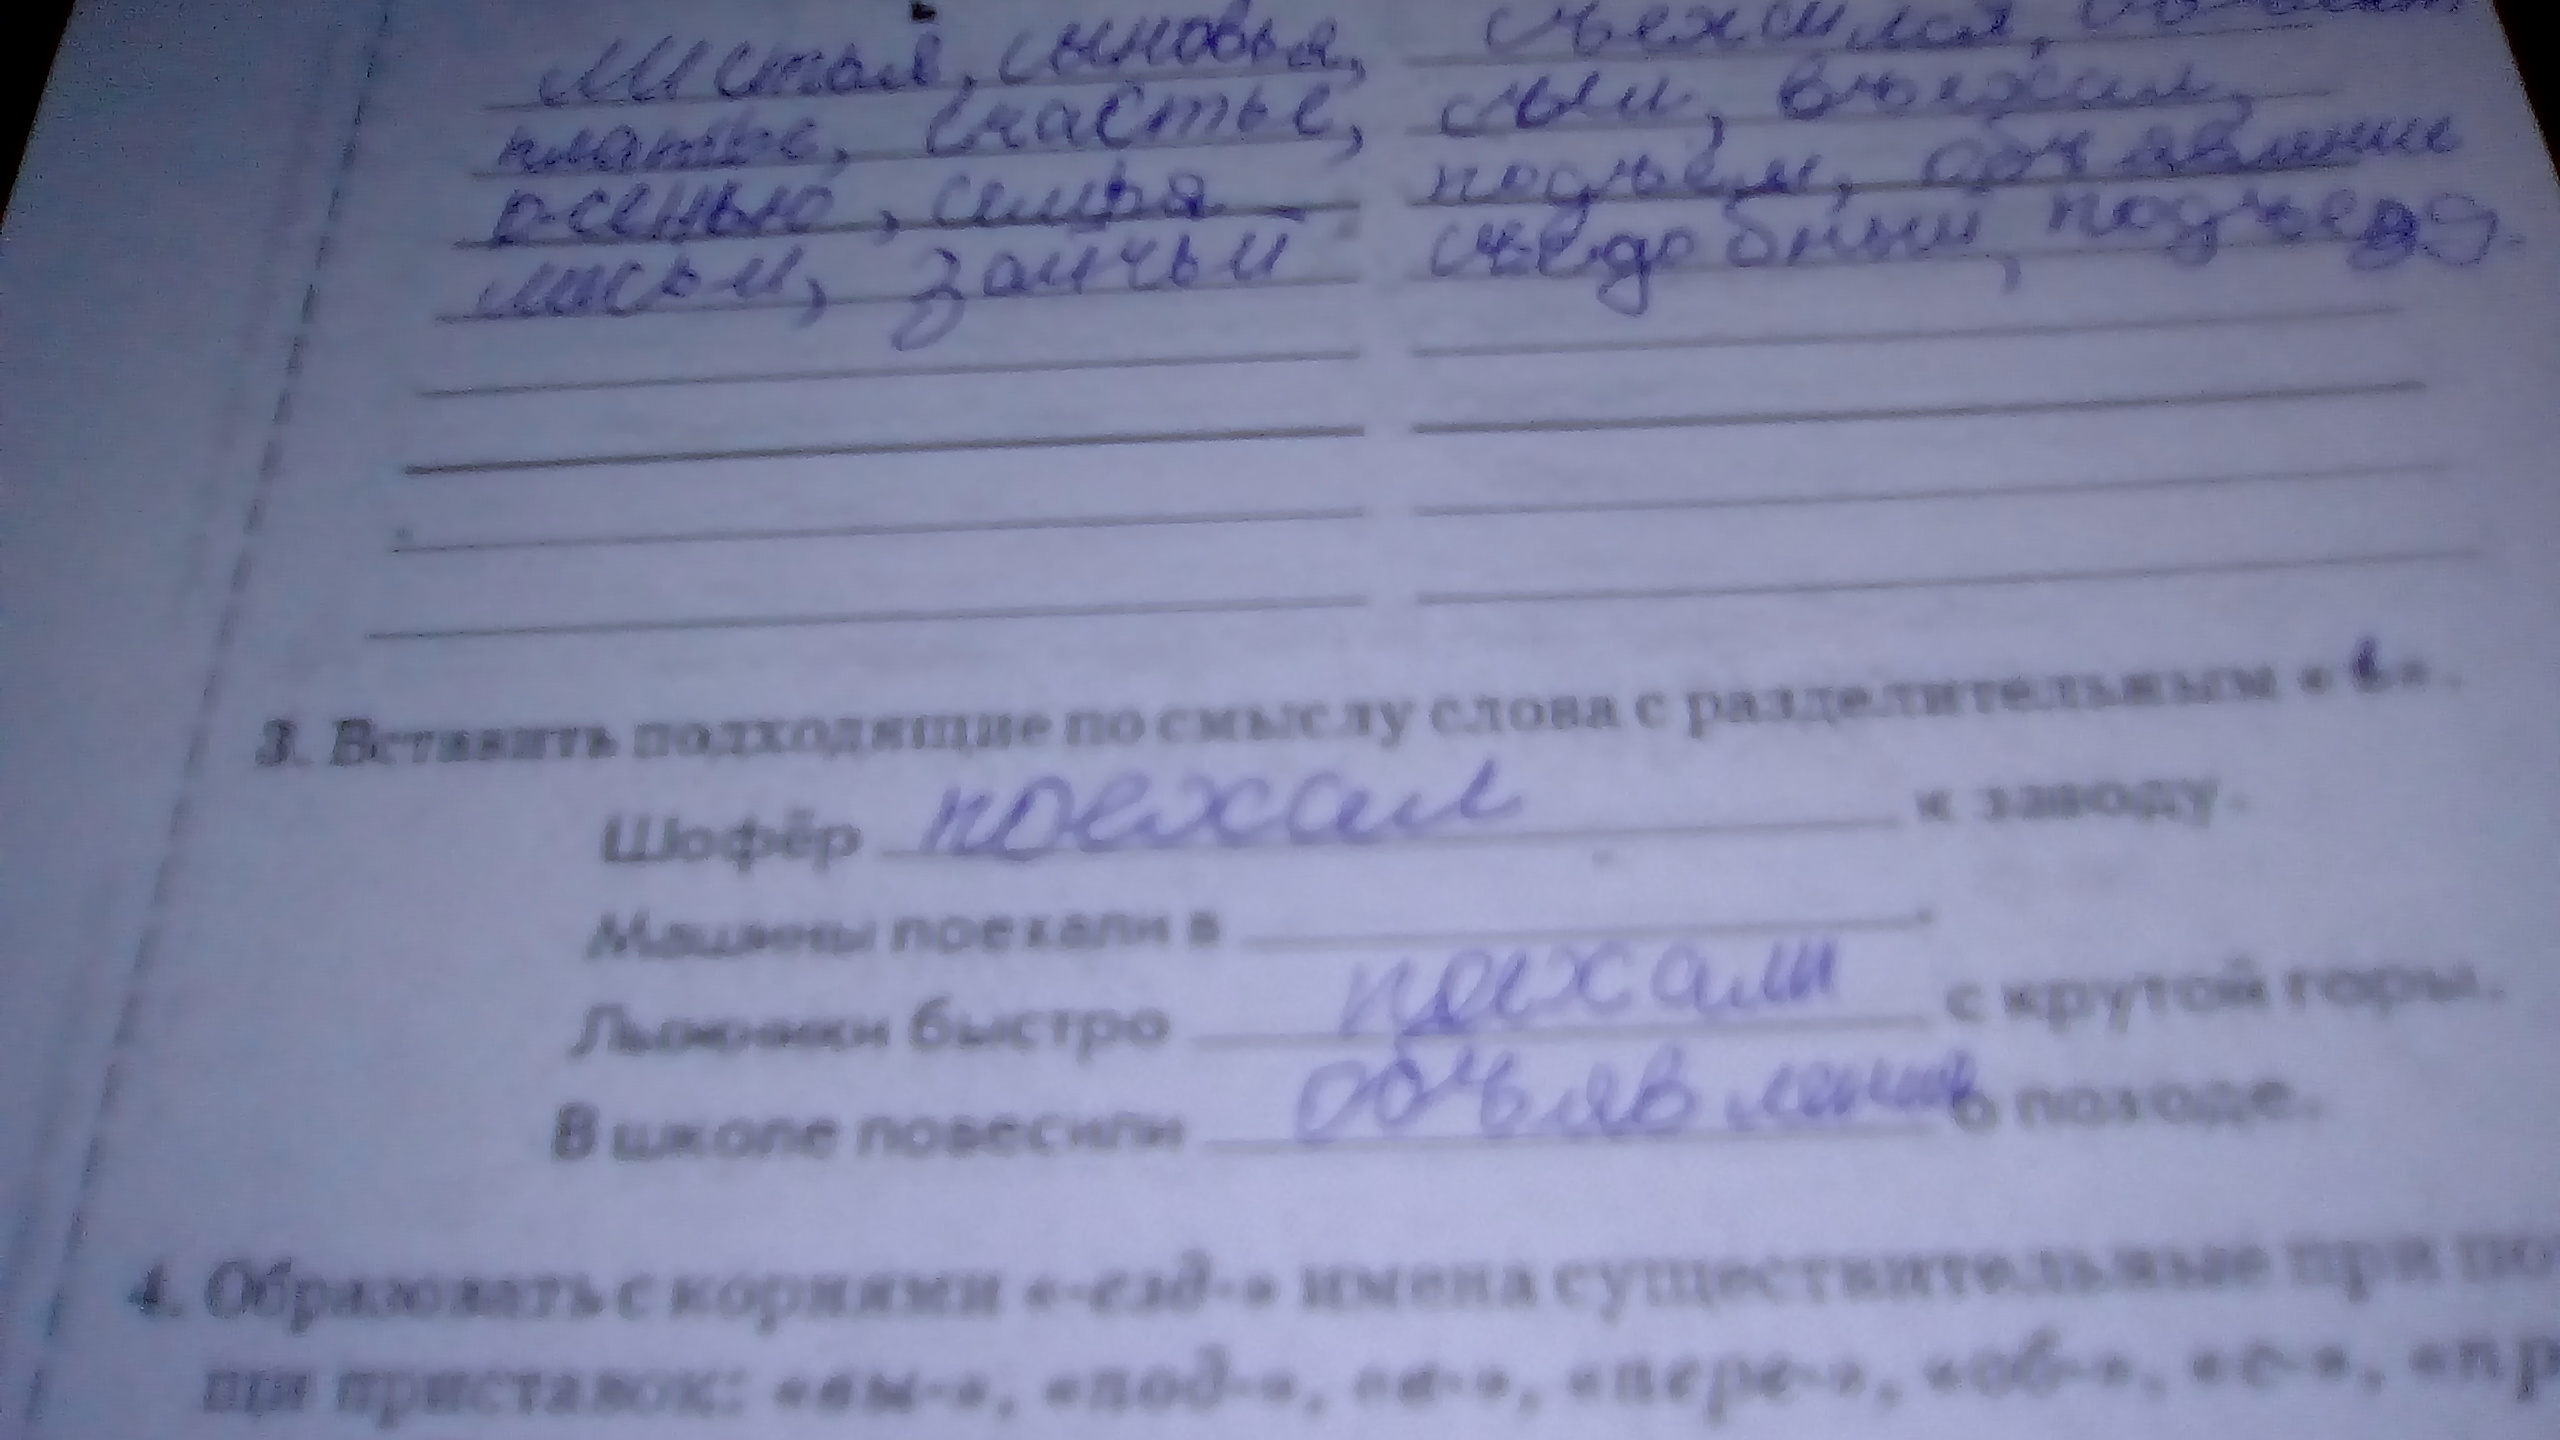 Листья, сыновья, съежился,
платье, счастье, съел, въехал,
осенью, семья подъём, объявление
лисьи, заичьи съедобный, подъезд.
3. Вставить подходящие по смыслу слова с разделительным «ъ».
Шофёр поехал к заводу.
Машины поехали в .
Лыжники быстро поехали с крутой горы.
В школе повесили объявление о походе.
4. Образовать с корнями «-езд-» имена существительные при по
щи приставок: «вы-», «под-», «в-», «пере-», «об-», «с-», «пр